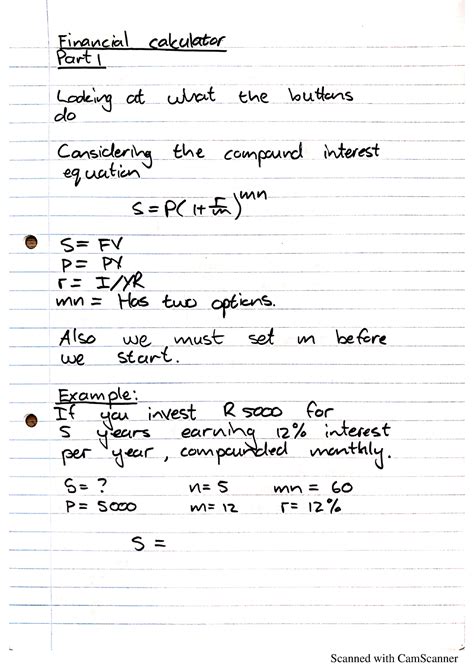 Financial calculator
Part 1
Looking at what the buttons
do
Considering the compound interest
equation
S = P(1 + r/m)^mn
S = FV
P = PV
r = I/YR
mn = Has two options.
Also we must set m before
we start.
Example:
If you invest R 5000 for
5 years earning 12% interest
per year, compounded monthly.
S = ? n = 5 mn = 60
P = 5000 m = 12 r = 12%
S =
Scanned with CamScanner